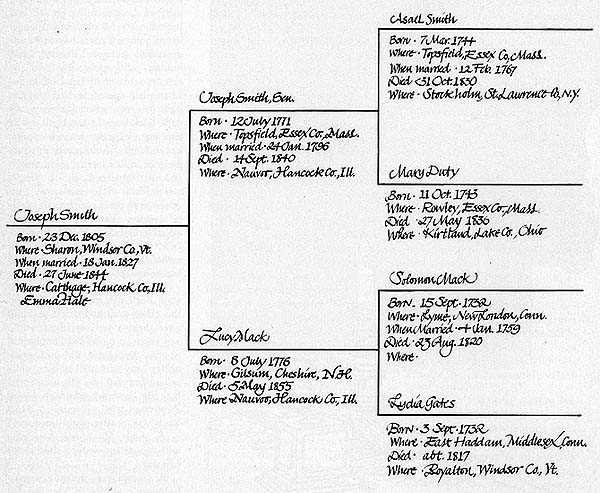 Joseph Smith
Born · 23 Dec. 1805
Where · Sharon, Windsor Co., Vt.
When married · 18 Jan. 1827
Died · 27 June 1844
Where · Carthage, Hancock Co., Ill.
Emma Hale
Joseph Smith, Sen.
Born · 12 July 1771
Where · Topsfield, Essex Co., Mass.
When married · 24 Jan. 1796
Died · 14 Sept. 1840
Where · Nauvoo, Hancock Co., Ill.
Lucy Mack
Born · 8 July 1776
Where · Gilsum, Cheshire, N.H.
Died · 5 May 1855
Where Nauvoo, Hancock Co., Ill.
Asael Smith
Born · 7 Mar. 1744
Where · Topsfield, Essex Co., Mass.
When married · 12 Feb. 1767
Died · 31 Oct. 1830
Where · Stockholm, St. Lawrence Co., N.Y.
Mary Duty
Born · 11 Oct. 1743
Where · Rowley, Essex Co., Mass.
Died · 27 May 1836
Where · Kirtland, Lake Co., Ohio
Solomon Mack
Born · 15 Sept. 1732
Where · Lyme, New London, Conn.
When Married · 4 Jan. 1759
Died · 23 Aug. 1820
Where ·
Lydia Gates
Born · 3 Sept. 1732
Where · East Haddam, Middlesex, Conn.
Died · abt. 1817
Where · Royalton, Windsor Co., Vt.